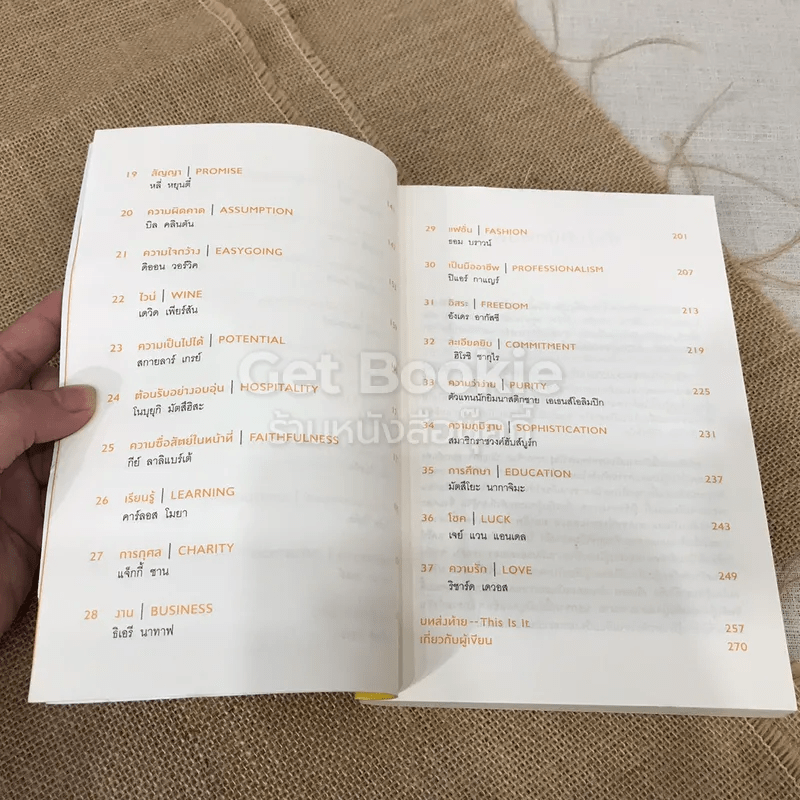 19 สัญญา | PROMISE
หลี่ หยุนตี๋
20 ความผิดคาด | ASSUMPTION
บิล คลินตัน
21 ความใจกว้าง | EASYGOING
ดิออน วอร์วิค
22 ไวน์ | WINE
เดวิด เพียร์สัน
23 ความเป็นไปได้ | POTENTIAL
สกายลาร์ เกรย์
24 ต้อนรับอย่างอบอุ่น | HOSPITALITY
โนบุยูกิ มัตสึฮิสะ
25 ความซื่อสัตย์ในหน้าที่ | FAITHFULNESS
กีย์ ลาลิแบร์เต้
26 เรียนรู้ | LEARNING
คาร์ลอส โมยา
27 การกุศล | CHARITY
แจ็กกี้ ชาน
28 งาน | BUSINESS
ธิเอรี นาทาฟ
29 แฟชั่น | FASHION 201
ธอม บราวน์
30 เป็นมืออาชีพ | PROFESSIONALISM 207
ปิแอร์ กาแญร์
31 อิสระ | FREEDOM 213
อังเดร อากัสซี
32 ละเอียดยิบ | COMMITMENT 219
ฮิโรชิ ซากุไร
33 ความว่างาน | PURITY 225
ตัวแทนนักยิมนาสติกชาย เอเธนส์โอลิมปิก
34 ความภูมิฐาน | SOPHISTICATION 231
สมาชิกราชวงศ์ฮับส์บูร์ก
35 การศึกษา | EDUCATION 237
มัตสึโยะ นากาจิมะ
36 โชค | LUCK 243
เจย์ แวน แอนเดล
37 ความรัก | LOVE 249
ริชาร์ด เดวอส
บทส่งท้าย -- This Is It 257
เกี่ยวกับผู้เขียน 270
Get Bookie